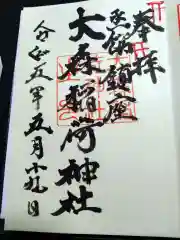 奉拝
武蔵鎮座
大森稲荷神社
令和五年五月十九日